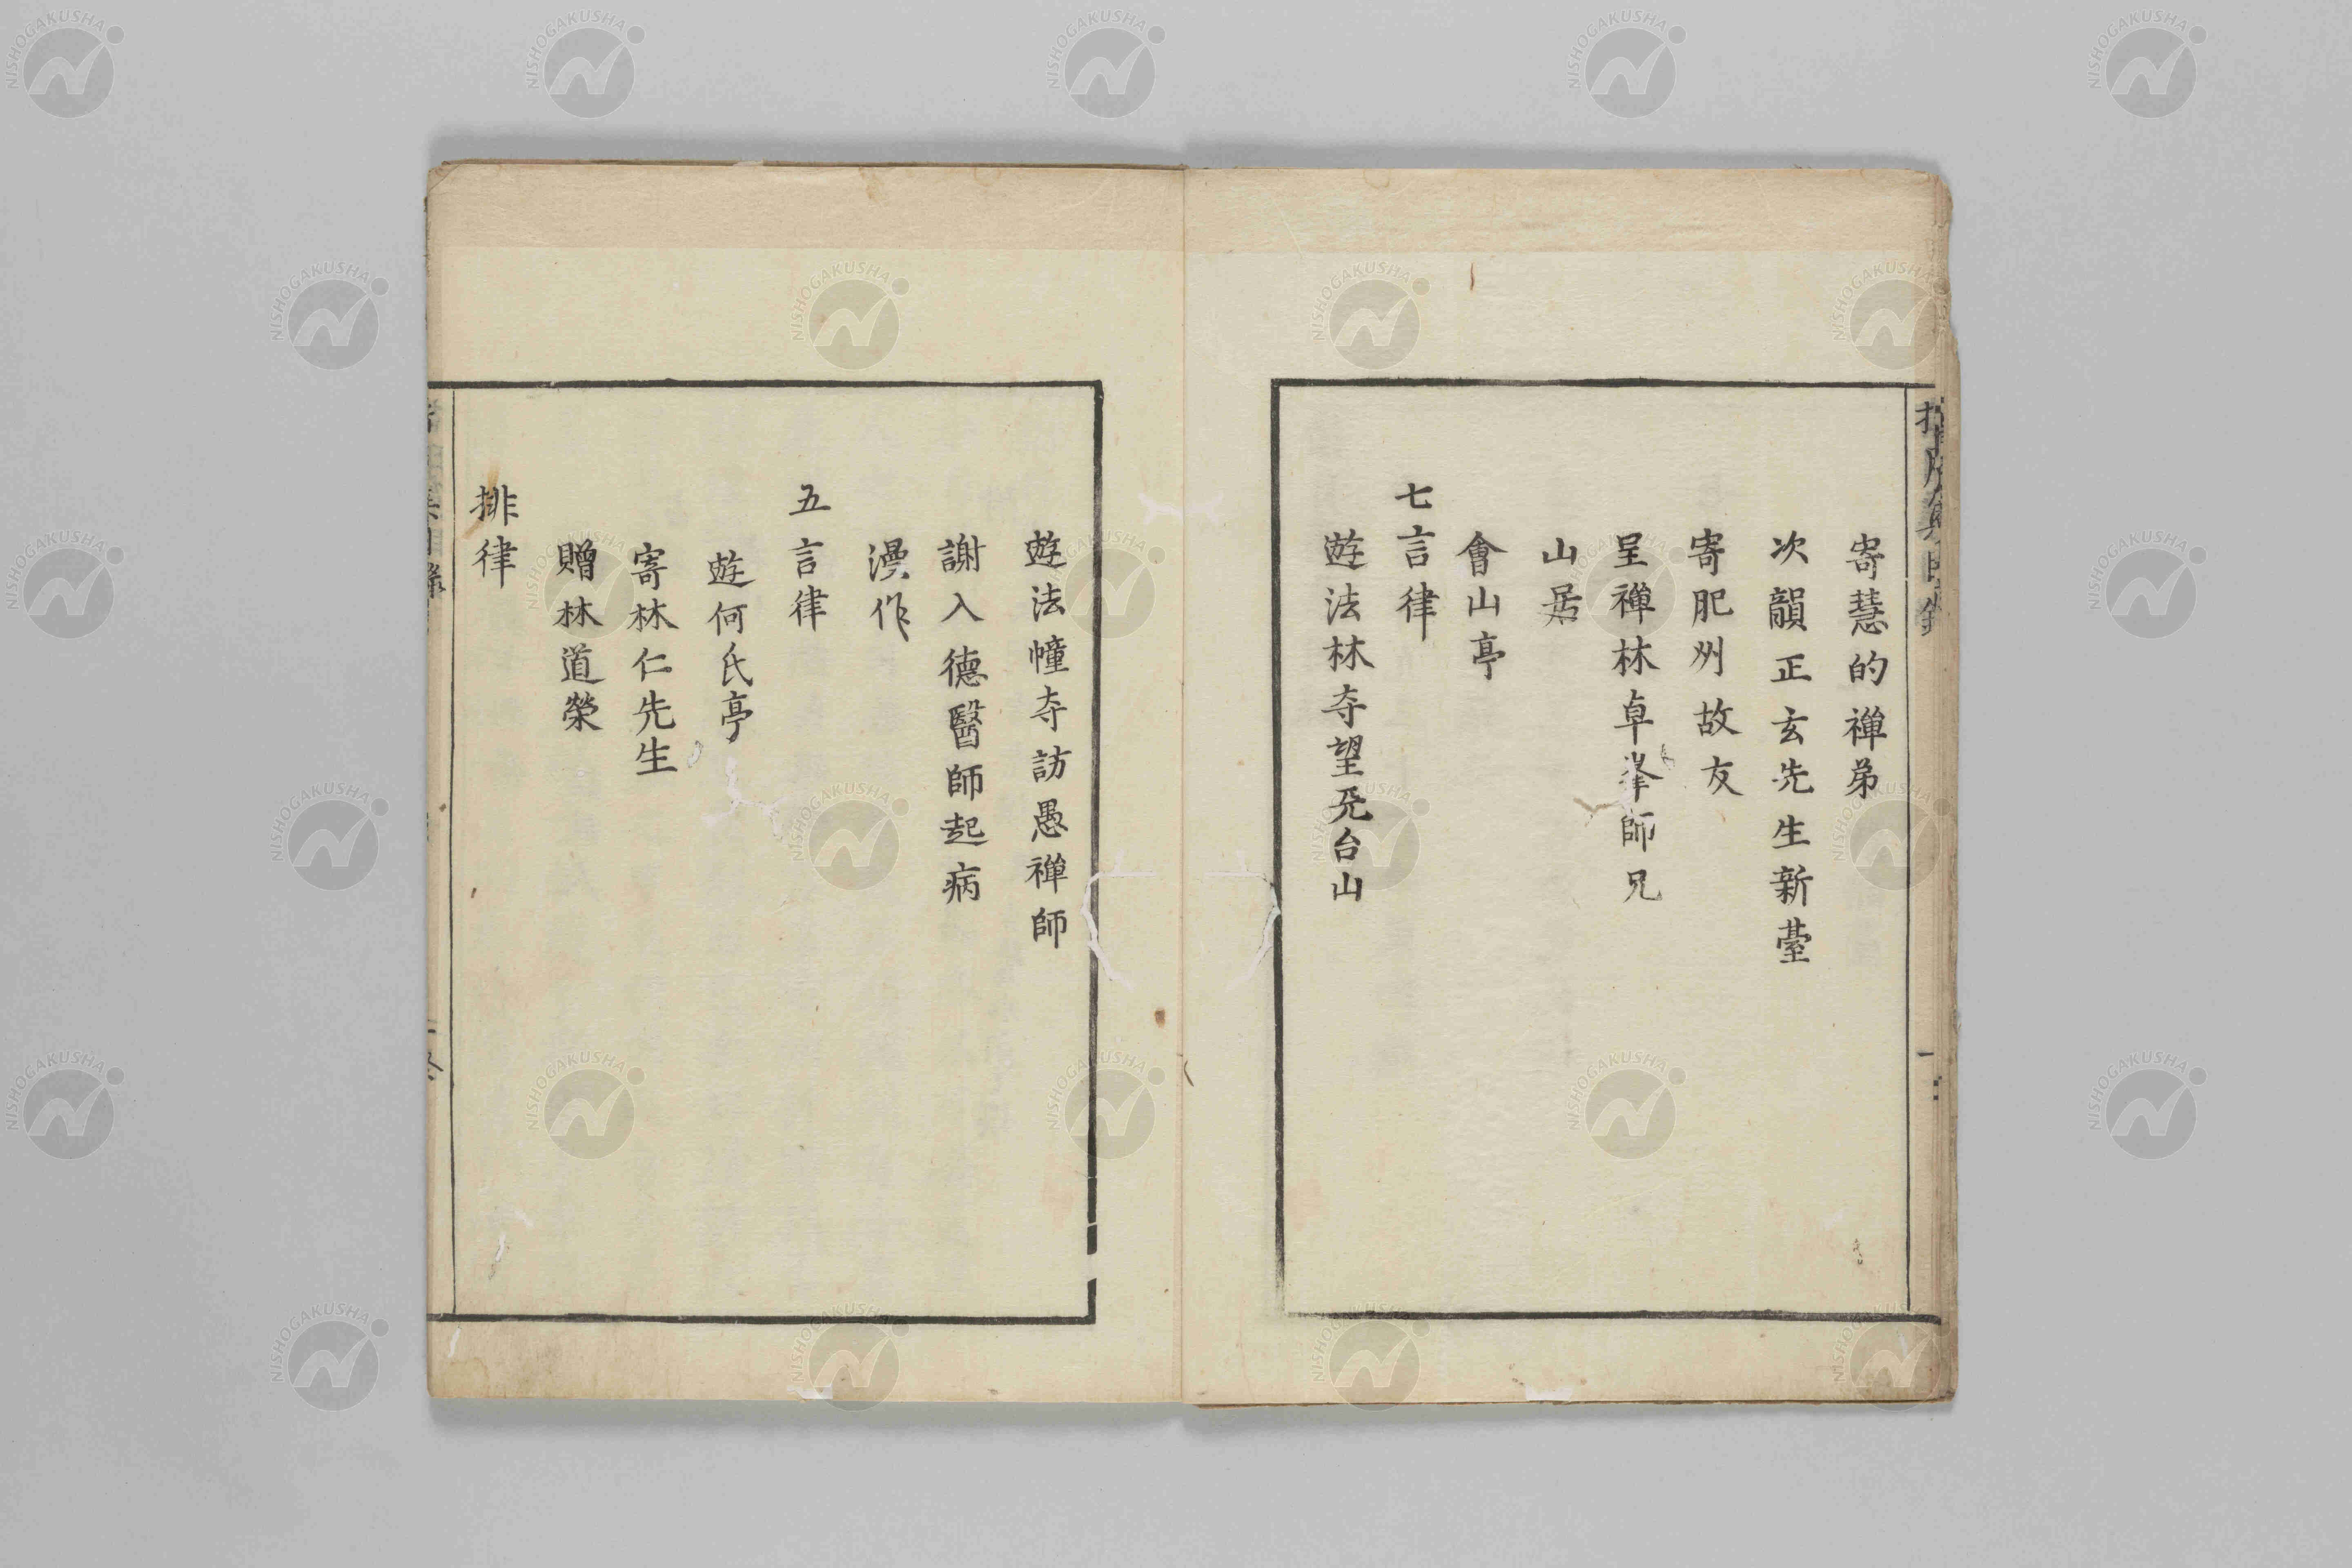 寄慧的禅弟
次韻正玄先生新臺
寄肥州故友
呈禅林卓峯師兄
山居
會山亭
七言律
遊法林寺望天台山
遊法幢寺訪愚禅師
謝入德醫師起病
漫作
五言律
遊何氏亭
寄林仁先生
贈林道榮
排律
NISHOGAKUSHA